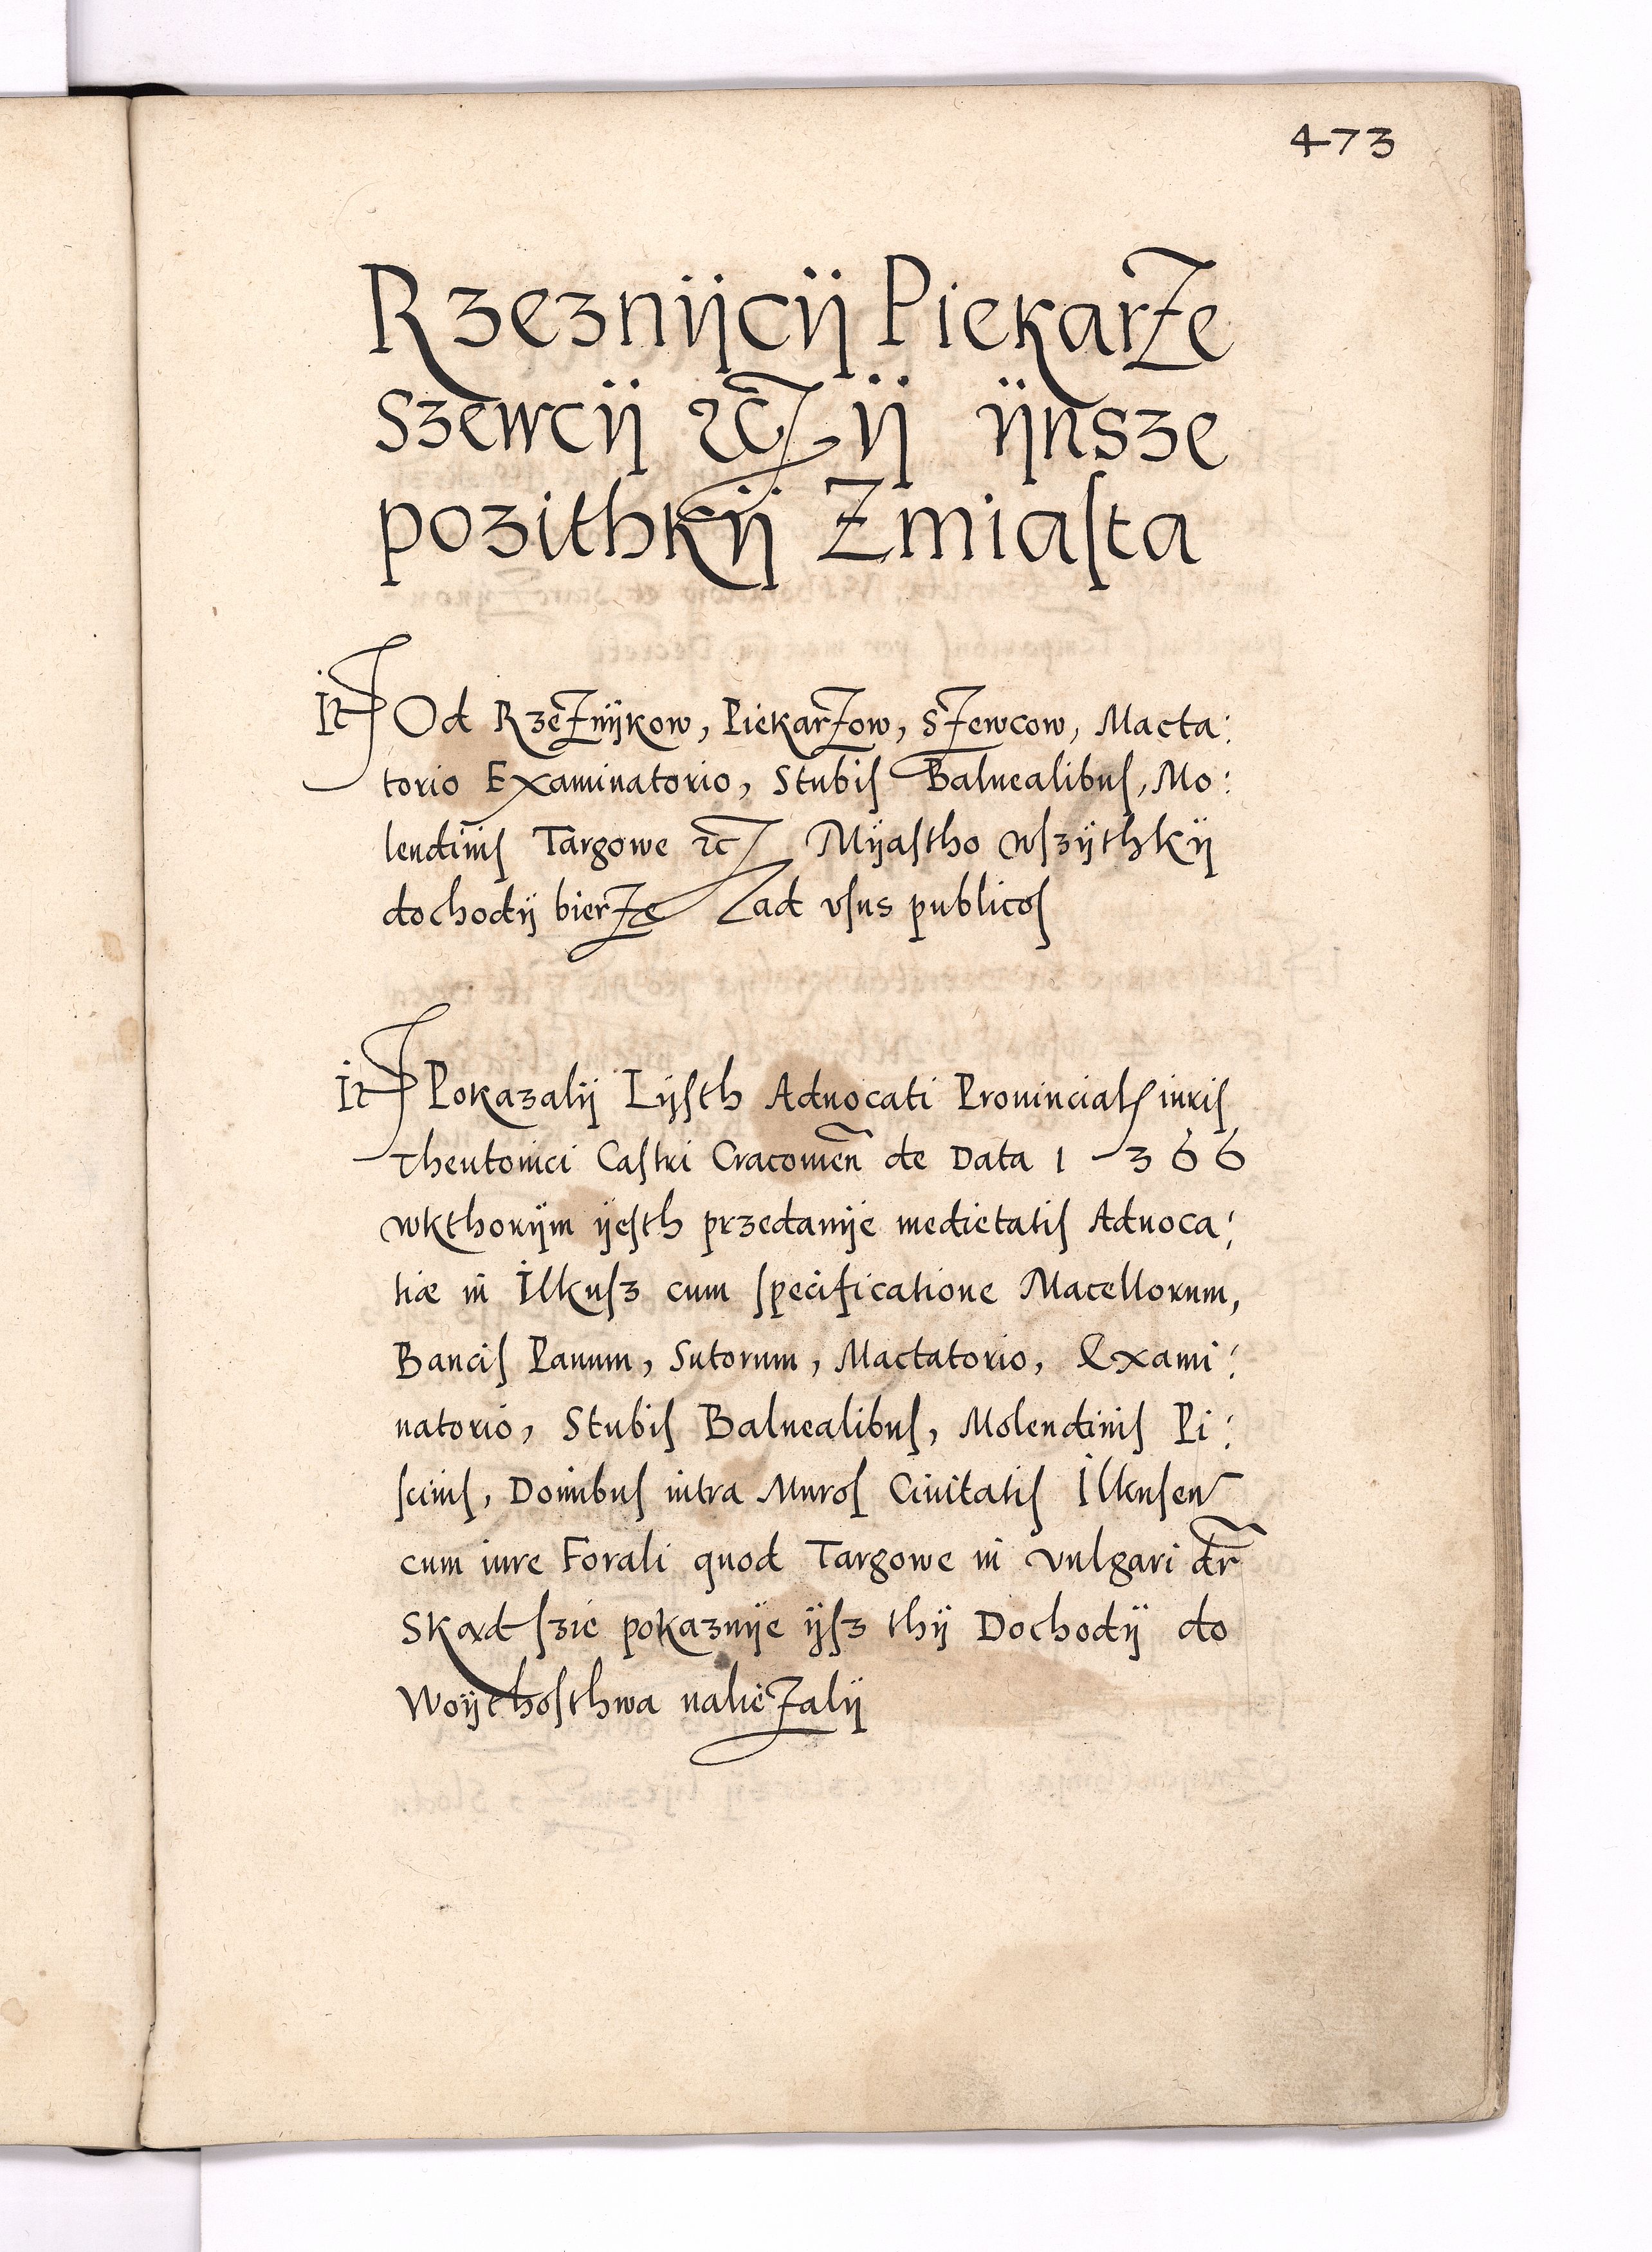 473
Rzeznijcij Piekarze
Szewcij etc ij ijnsze
pozithkij Zmiasta
It Od Rzeznijkow, Piekarzow, Szewcow, Macta:
torio Examinatorio, Stubis Balnealibus, Mo:
lendinis Targowe etc Mijastho wszijthkij
dochodij bierze ad usus publicos
It Pokazalij Lijsth Aduocati Prouincialis iuris
Theutonici Castri Cracouien̄ de Data 1366
wkthorijm ijesth przedanije medietatis Aduoca:
tiæ in Ilkusz cum specificatione Macellorum,
Bancis Panum, Sutorum, Mactatorio, Exami:
natorio, Stubis Balnealibus, Molendinis Pi:
scinis, Domibus intra Muros Ciuitatis Ilkusen
cum iure Forali quod Targowe in vulgari dr̄
Skąd szie pokazuije ijsz thij Dochodij do
Woijthosthwa należalij